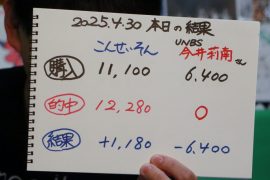 2025.4.30 本日の結果
こんせいそん UNBS 今井莉南さん
購入 11,100 6,400
的中 12,280 0
結果 +1,180 -6,400